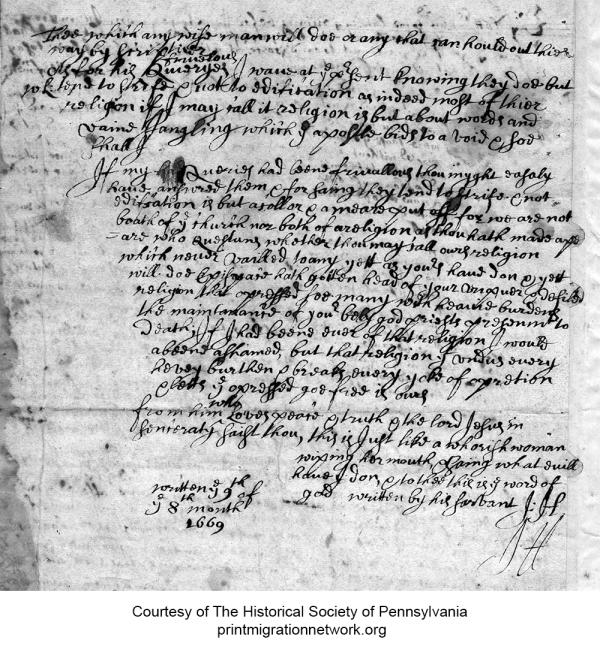 Thee which any wise man will doe or any that can hould out thier
way by scripture
As for his frivelous Queryes I wave at ye present knowing they doe but
tend to strife & not to edification as indeed most of thier
religion if I may call it religion is but about words and
vaine jangling which ye apostle bids to avoid & soe
shall I
If my Queries had beene frivallous thou myght easaly
have answred them, & for saing they tend to strife & not
edification is but a & put off for we are not
boath of ye church nor both of a religion as thou hath made
are who Questuns whether thou may call ours religion
which never varied to any yett as yours have don & yett
will doe
religion that opressed soe many with heavie burdens
the maintanance of your god priests to
death; If I had beene ever of that religion I would
abeene ashamed, but that religion yt undus every
hevey burthen & breaks every yoke of opretion
& letts ye opressed goe free is ours
from him who Loves peace & truth & the lord Jesus in
senceraty saist thou, this is Just like a whorish woman
wiping her mouth, & saing what evill
have I don, & to thee this is ye word of
god written by his sarvant J: H
written ye 9th of
ye 8th month
1669
J H
Courtesy of The Historical Society of Pennsylvania
printmigrationnetwork.org